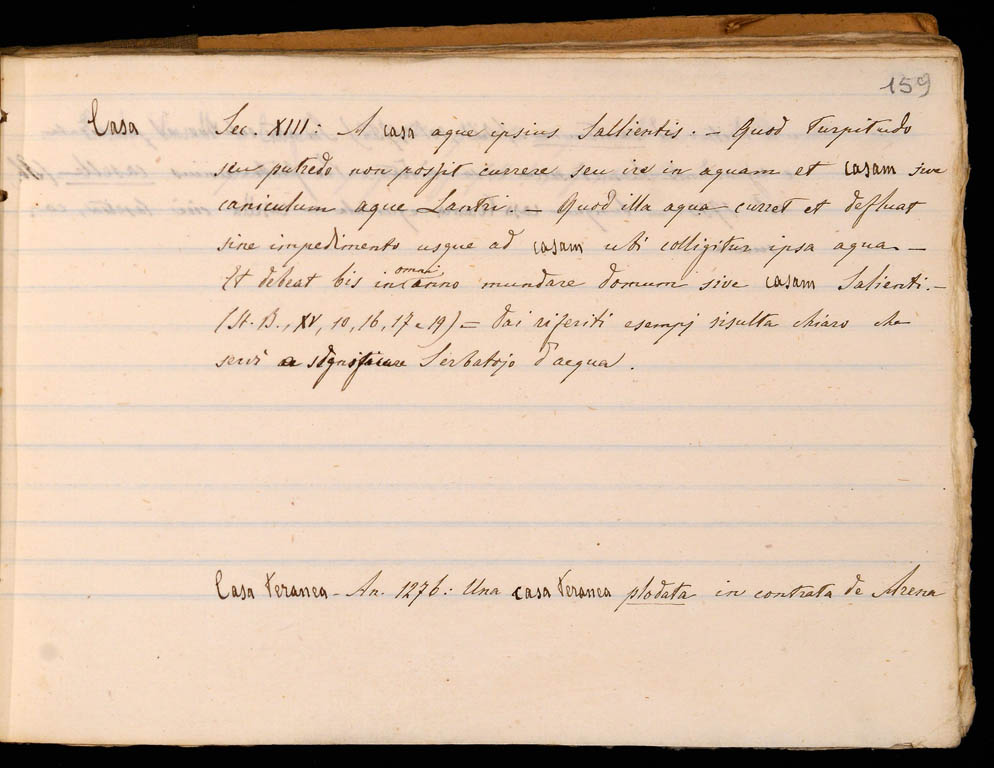 159
Casa Sec. XIII: A casa aque ipsius Sallientis. – Quod turpitudo
seu putredo non possit currere seu ire in aquam et casam sive
caniculum aque Lantri. – Quod illa aqua curret et defluat
sine impedimento usque ad casam ubi colligitur ipsa aqua –
Et debeat bis in omni anno mundare domum sive casam Salienti. –
(St. B., XV, 10, 16, 17 e 19) – Dai riferiti esempj risulta chiaro che
servì a significare Serbatojo d'acqua.
Casa teranea – An. 1276: Una casa teranea plodata in contrata de Arena